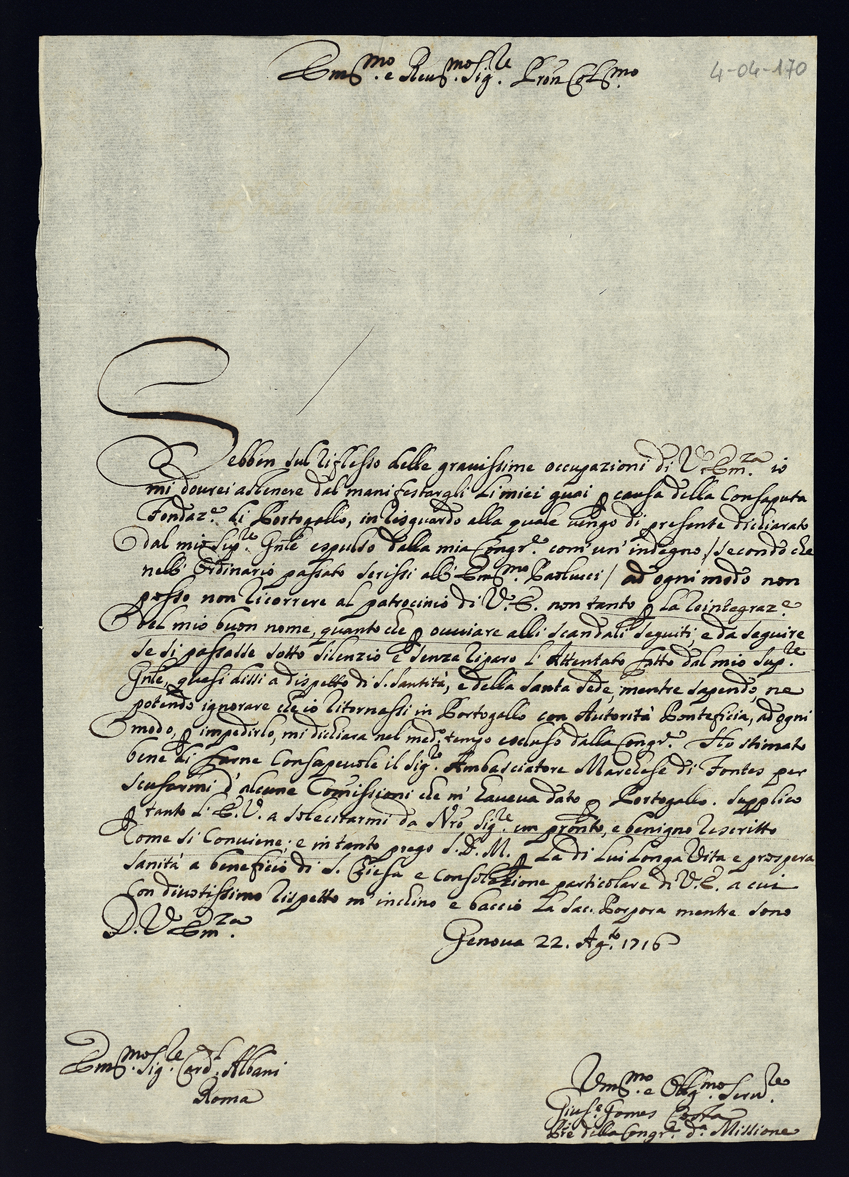 Em.mo e Reu.mo Sig.re Pron Col.mo
4-04-170
Sebben sul riflesso delle grauissime occupazioni di V. Em.za io
mi dourei astenere dal manifestargli li miei guai p causa della Consaputa
Fondaz.e di Portogallo, in risguardo alla quale uengo di presente dichiarato
dal mio Sup.re Gnle espulso dalla mia Congr.e com'un'indegno / secondo che
nell'Ordinario passato scrissi all'Em.mo Paolucci / ad ogni modo non
posso non ricorrere al patrocinio di V. E. non tanto p la reintegraz.e
del mio buon nome, quanto che p ouuiare alli scandali seguiti, e da seguire
se si passasse sotto silenzio e senza riparo l'Attentato fatto dal mio Sup.re
Gnle, quasi dissi a dispetto di S. Santità, e della Santa Sede, mentre sapendo, ne
potendo ignorare che io ritornassi in Portogallo con Autorità Pontificia, ad ogni
modo, p impedirlo, mi dichiara nel med.o tempo escluso dalla Congr.e Ho stimato
bene di farne Consapeuole il Sig.r Ambasciatore Marchese di Fontes per
scusarmi d'alcune Comissioni che m'haueua dato p Portogallo. Supplico
p tanto l'E. V. a solecitarmi da Nro Sig.re un pronto, e benigno rescritto
come si Conuiene; e in tanto prego S. D. M. p la di lui longa Vita e prospera
sanità a beneficio di S. Chiesa e Consolazione particolare di V. E. a cui
con diuotissimo rispetto m'inclino e baccio la Sac. Porpora mentre sono
D. V. Em.za
Genoua 22. Ag.to 1716
Em.mo Sig.re Card.l Albani
Roma
Vm.mo e Obbg.mo Seru.re
Gius.e Gomes Costa
Pre della Congr.e d.a Missione